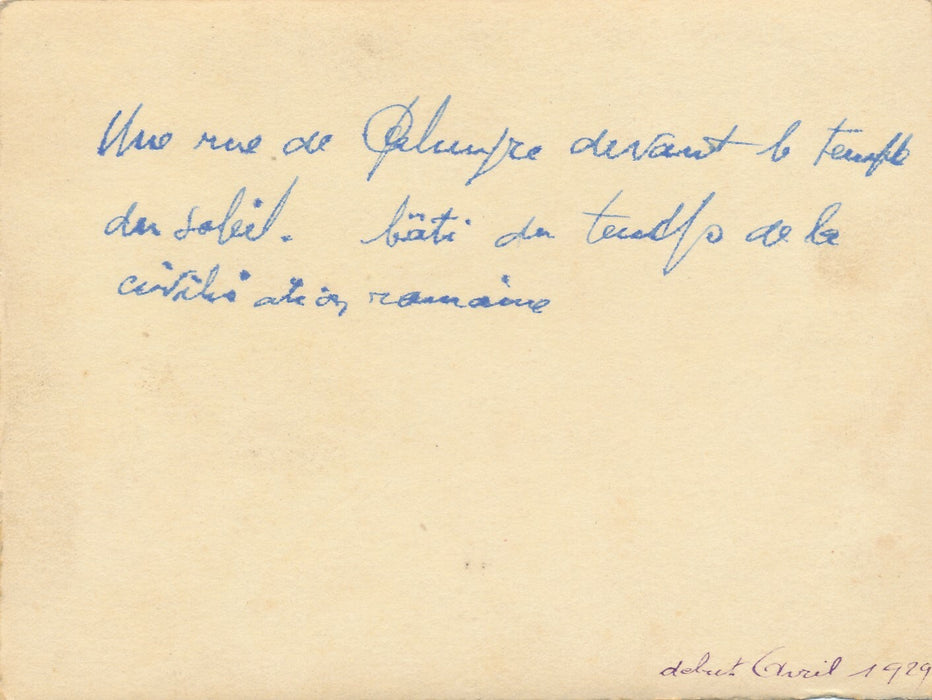 Une rue de Palmyre devant le temple
du soleil. bâti du temps de la
civilisation romaine
debut Avril 1929